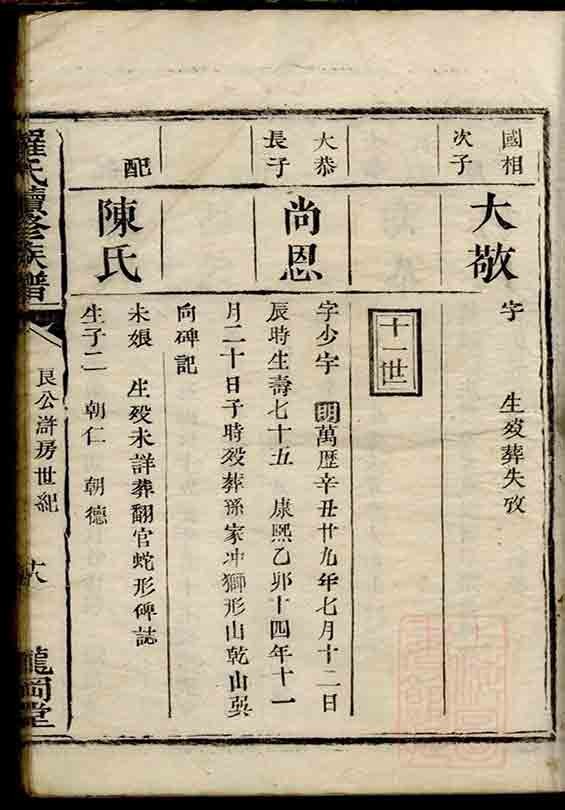 國相
次子
大敬
字 生歿葬失攷
十一世
大恭
長子
尚恩
字少字 明萬歷辛丑廿九年七月十二日
辰時生壽七十五 康熙乙卯十四年十一
月二十日子時歿葬孫家冲獅形山乾山巽
向碑記
配
陳氏
未娘 生歿未詳葬翻官蛇形碑誌
生子二 朝仁 朝德
羅氏續修族譜
良公滸房世紀
十八
龍岡堂